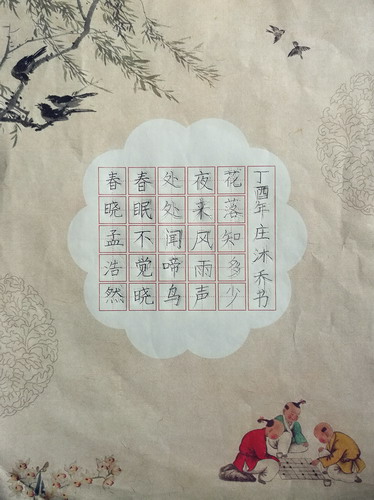 春晓孟浩然
春眠不觉晓
处处闻啼鸟
夜来风雨声
花落知多少
丁酉年庄沐乔书